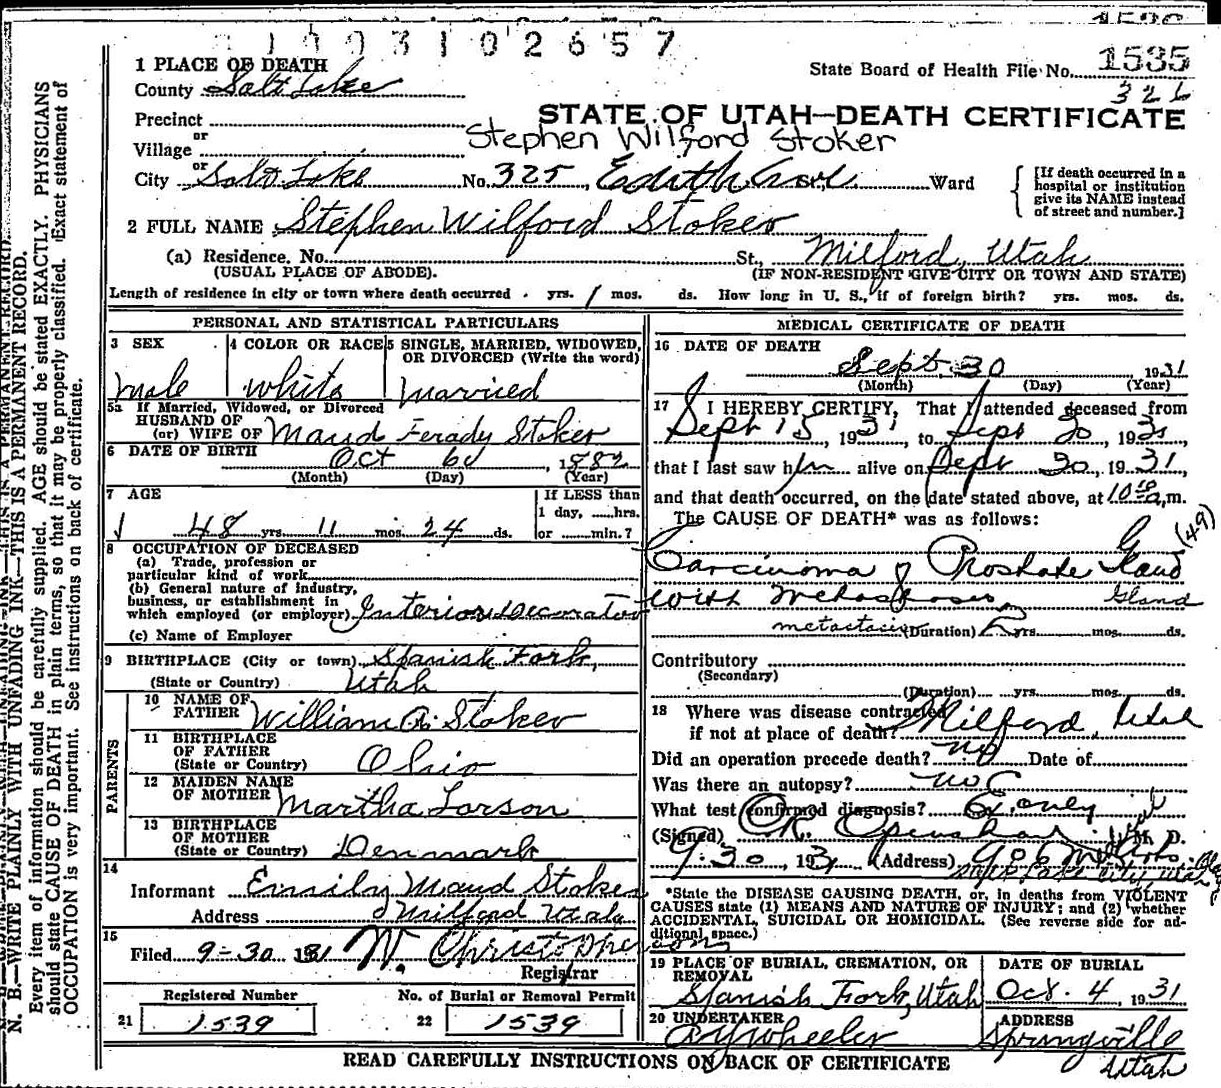 1 9 0 3 1 0 2 6 5 7
State Board of Health File No. 1535
326
1 PLACE OF DEATH
County Salt Lake
STATE OF UTAH—DEATH CERTIFICATE
Precinct
or
Village
Stephen Wilford Stoker
or
City Salt Lake No. 325, Edith Ave Ward
[If death occurred in a hospital or institution give its NAME instead of street and number.]
2 FULL NAME Stephen Wilford Stoker
(a) Residence. No. St., Milford, Utah
(USUAL PLACE OF ABODE). (IF NON-RESIDENT GIVE CITY OR TOWN AND STATE)
Length of residence in city or town where death occurred . yrs. 1 mos. ds. How long in U. S., if of foreign birth? yrs. mos. ds.
PERSONAL AND STATISTICAL PARTICULARS
3 SEX 4 COLOR OR RACE 5 SINGLE, MARRIED, WIDOWED,
OR DIVORCED (Write the word)
Male White Married
5a If Married, Widowed, or Divorced
HUSBAND OF
(or) WIFE OF Maud Ferady Stoker
6 DATE OF BIRTH Oct 6, 1882
(Month) (Day) (Year)
7 AGE If LESS than
1 day, hrs.
48 yrs. 11 mos. 24 ds. or min.?
8 OCCUPATION OF DECEASED
(a) Trade, profession or
particular kind of work
(b) General nature of industry,
business, or establishment in
which employed (or employer) Interior Decorator
(c) Name of Employer
9 BIRTHPLACE (City or town) Spanish Fork,
(State or Country) Utah
PARENTS
10 NAME OF
FATHER William A. Stoker
11 BIRTHPLACE
OF FATHER
(State or Country) Ohio
12 MAIDEN NAME
OF MOTHER Martha Larson
13 BIRTHPLACE
OF MOTHER
(State or Country) Denmark
14
Informant Emily Maud Stoker
Address Milford Utah
15
Filed 9-30 1931 W. Christopherson
Registrar
Registered Number No. of Burial or Removal Permit
21 1539 22 1539
MEDICAL CERTIFICATE OF DEATH
16 DATE OF DEATH
Sept. 30 1931
(Month) (Day) (Year)
17 I HEREBY CERTIFY, That I attended deceased from
Sept 15, 1931, to Sept 30, 1931,
that I last saw him alive on Sept 30, 1931,
and that death occurred, on the date stated above, at 10 10 a.m.
The CAUSE OF DEATH* was as follows:
(49)
Carcinoma of Prostate Gland
with Metastases Gland
metastasis (Duration) 2 yrs. mos. ds.
Contributory
(Secondary)
(Duration) yrs. mos. ds.
18 Where was disease contracted
if not at place of death? Milford, Utah
Did an operation precede death? no Date of
Was there an autopsy? no
What test confirmed diagnosis? Ex. only
(Signed) M. D.
9-30 1931 (Address) 906
Salt Lake City Utah
*State the DISEASE CAUSING DEATH, or, in deaths from VIOLENT
CAUSES state (1) MEANS AND NATURE OF INJURY; and (2) whether
ACCIDENTAL, SUICIDAL OR HOMICIDAL. (See reverse side for ad-
ditional space.)
19 PLACE OF BURIAL, CREMATION, OR
REMOVAL DATE OF BURIAL
Spanish Fork, Utah Oct. 4, 1931
20 UNDERTAKER ADDRESS
Wheeler Springville
Utah
READ CAREFULLY INSTRUCTIONS ON BACK OF CERTIFICATE
N. B.—WRITE PLAINLY WITH UNFADING INK—THIS IS A PERMANENT RECORD.
Every item of information should be carefully supplied. AGE should be stated EXACTLY. PHYSICIANS
should state CAUSE OF DEATH in plain terms, so that it may be properly classified. Exact statement of
OCCUPATION is very important. See instructions on back of certificate.